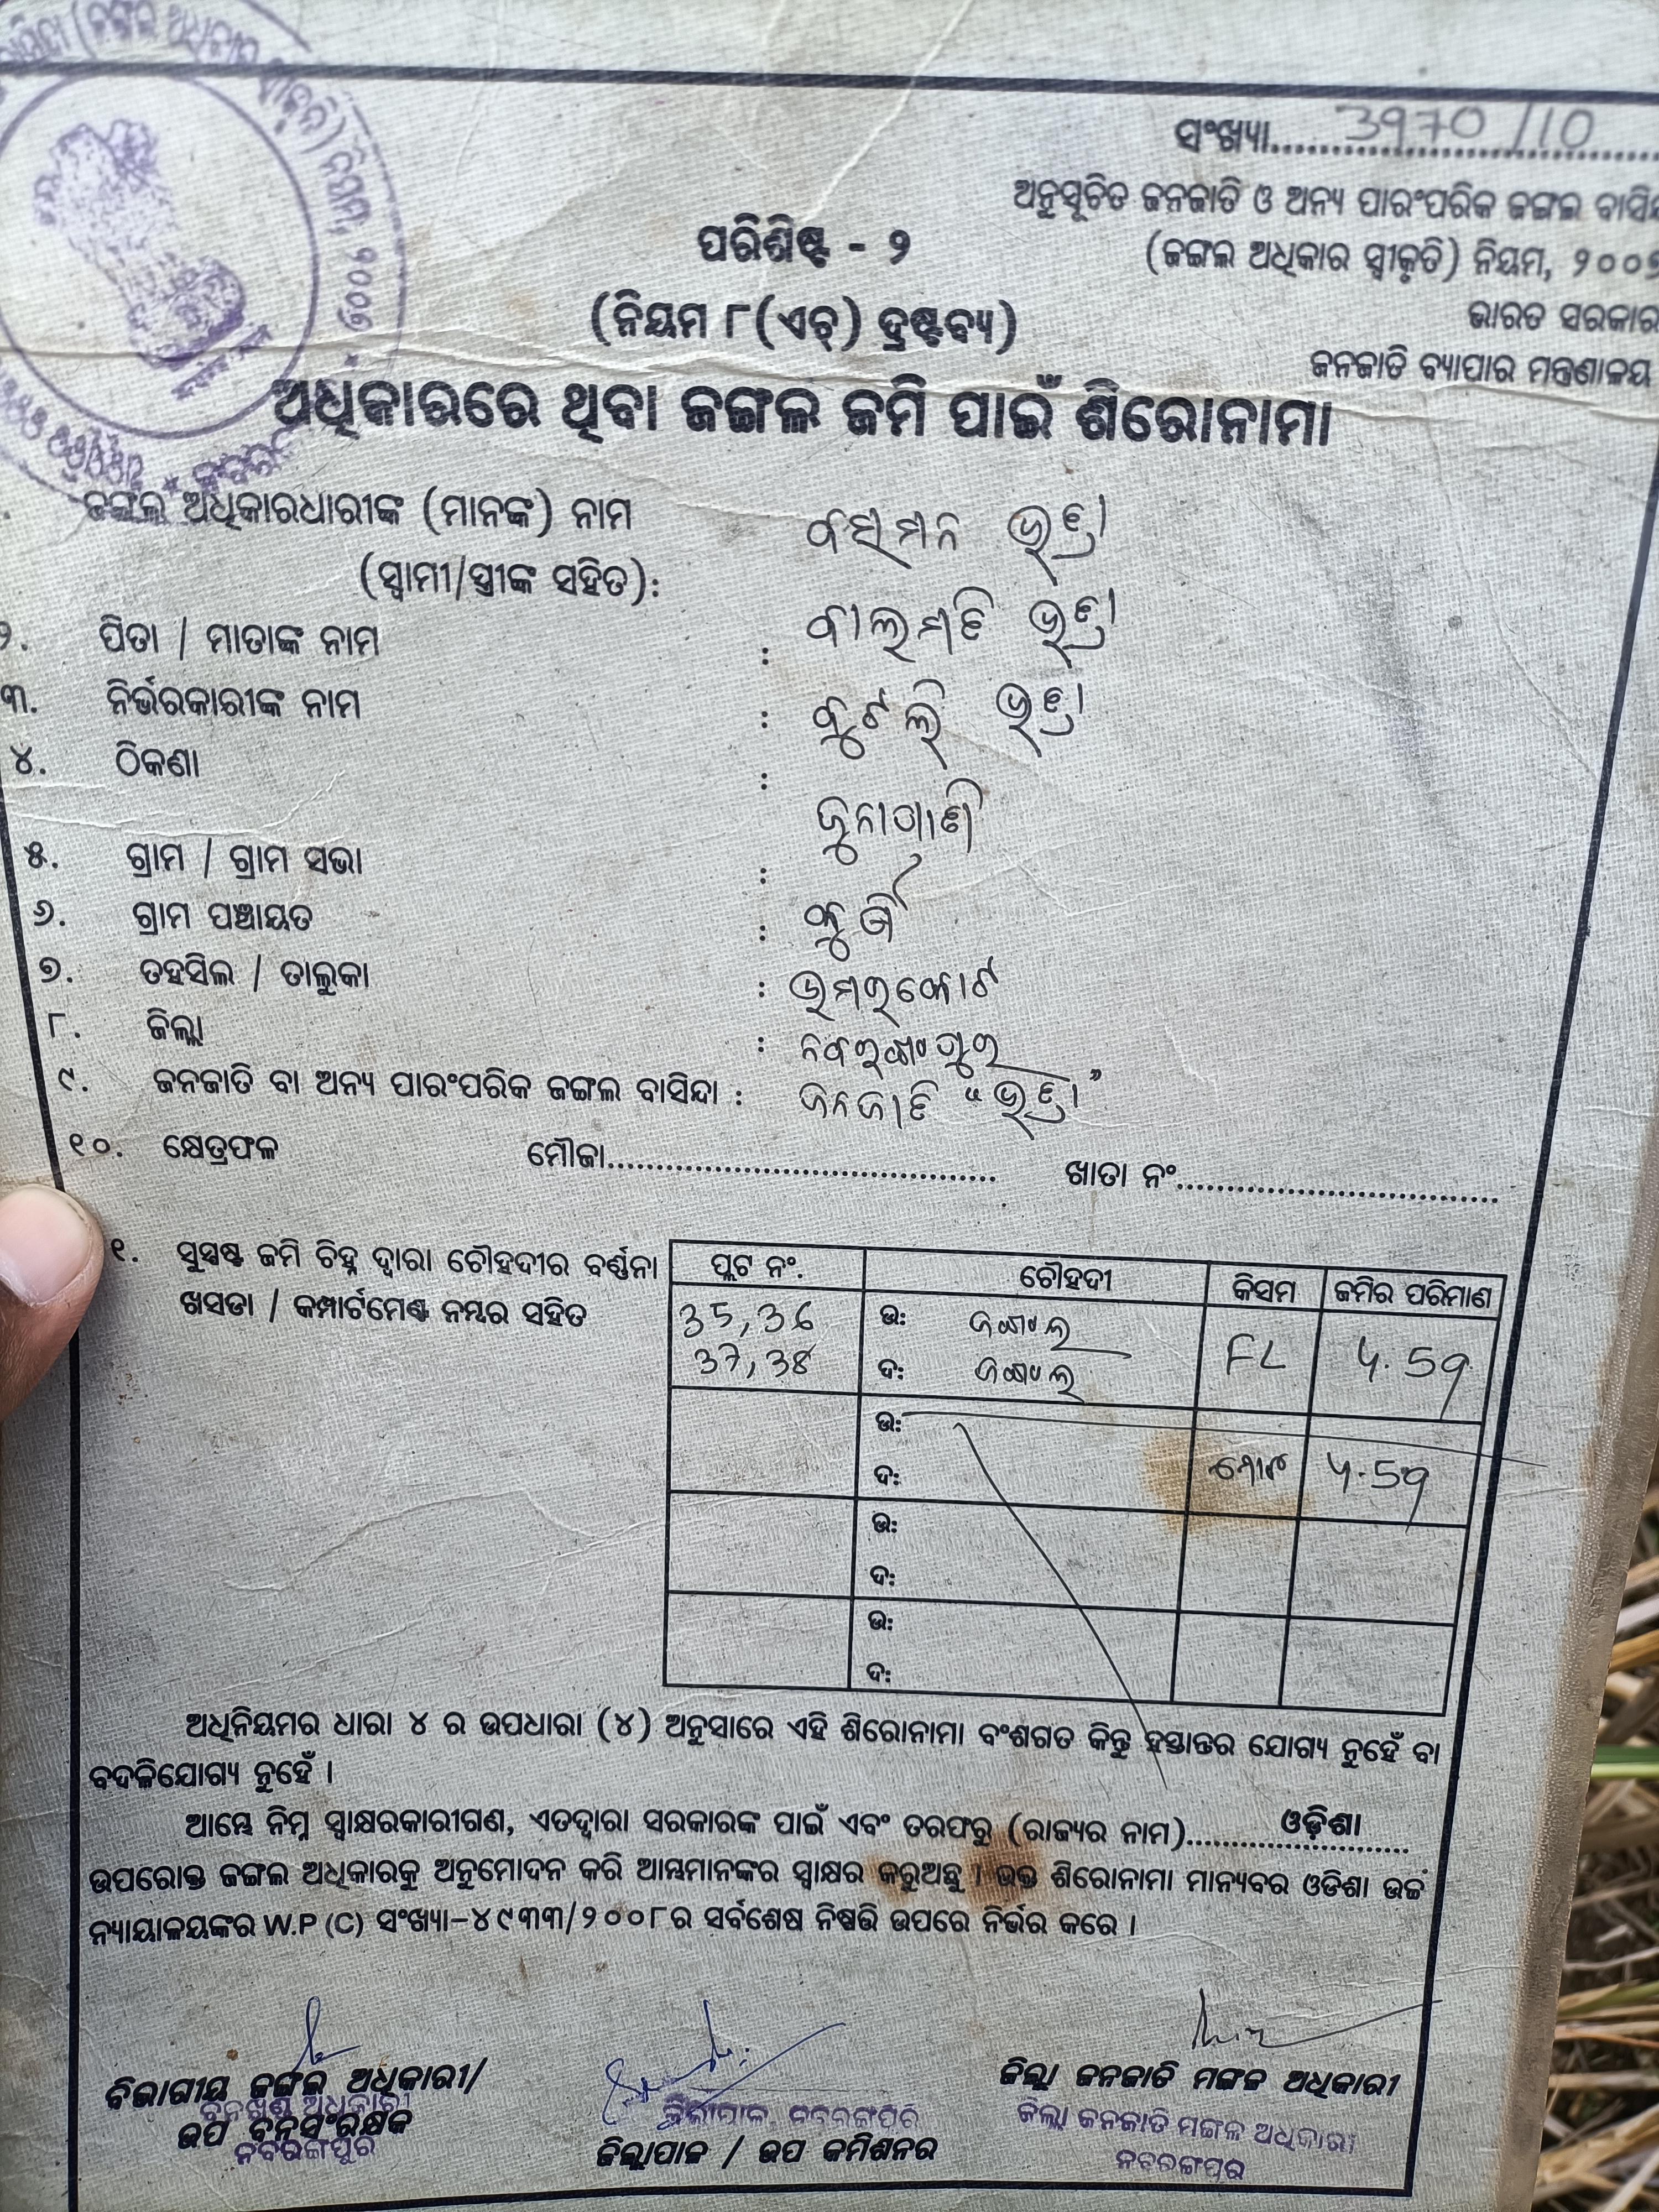 ସଂଖ୍ୟା 3970/10
ଅନୁସୂଚିତ ଜନଜାତି ଓ ଅନ୍ୟ ପାରଂପରିକ ଜଙ୍ଗଲ
(ଜଙ୍ଗଲ ଅଧିକାର ସ୍ୱୀକୃତି) ନିୟମ,
ଭାରତ ସରକାର
ଜନଜାତି ବ୍ୟାପାର ମନ୍ତ୍ରଣାଳୟ
ପରିଶିଷ୍ଟ - ୨
(ନିୟମ ୮(ଏଚ୍) ଦ୍ରଷ୍ଟବ୍ୟ)
ଅଧିକାରରେ ଥିବା ଜଙ୍ଗଲ ଜମି ପାଇଁ ଶିରୋନାମା
ଜଙ୍ଗଲ ଅଧିକାରଧାରୀଙ୍କ (ମାନଙ୍କ) ନାମ ଭତ୍ରା
(ସ୍ୱାମୀ/ସ୍ତ୍ରୀଙ୍କ ସହିତ):
୨. ପିତା / ମାତାଙ୍କ ନାମ : ବାଲମତି ଭତ୍ରା
୩. ନିର୍ଭରକାରୀଙ୍କ ନାମ : ଭତ୍ରା
୪. ଠିକଣା :
୫. ଗ୍ରାମ / ଗ୍ରାମ ସଭା : ଜୁନାପାଣି
୬. ଗ୍ରାମ ପଞ୍ଚାୟତ :
୭. ତହସିଲ / ତାଲୁକା : ଉମରକୋଟ
୮. ଜିଲ୍ଲା : ନବରଙ୍ଗପୁର
୯. ଜନଜାତି ବା ଅନ୍ୟ ପାରଂପରିକ ଜଙ୍ଗଲ ବାସିନ୍ଦା : ଜନଜାତି "ଭତ୍ରା"
୧୦. କ୍ଷେତ୍ରଫଳ ମୌଜା.......... ଖାତା ନଂ..........
୧. ସୁସ୍ପଷ୍ଟ ଜମି ଚିହ୍ନ ଦ୍ୱାରା ଚୌହଦୀର ବର୍ଣ୍ଣନା
ଖସଡା / କମ୍ପାର୍ଟମେଣ୍ଟ ନମ୍ବର ସହିତ
ପ୍ଲଟ ନଂ. ଚୌହଦୀ କିସମ ଜମିର ପରିମାଣ
35, 36 ଉ: ଜଙ୍ଗଲ FL 4.59
37, 38 ଦ: ଜଙ୍ଗଲ
ଉ:
ଦ: 4.59
ଉ:
ଦ:
ଉ:
ଦ:
ଅଧିନିୟମର ଧାରା ୪ ର ଉପଧାରା (୪) ଅନୁସାରେ ଏହି ଶିରୋନାମା ବଂଶଗତ କିନ୍ତୁ ହସ୍ତାନ୍ତର ଯୋଗ୍ୟ ନୁହେଁ ବା
ବଦଳିଯୋଗ୍ୟ ନୁହେଁ ।
ଆମ୍ଭେ ନିମ୍ନ ସ୍ୱାକ୍ଷରକାରୀଗଣ, ଏତଦ୍ୱାରା ସରକାରଙ୍କ ପାଇଁ ଏବଂ ତରଫରୁ (ରାଜ୍ୟର ନାମ)..........ଓଡ଼ିଶା..........
ଉପରୋକ୍ତ ଜଙ୍ଗଲ ଅଧିକାରକୁ ଅନୁମୋଦନ କରି ଆମ୍ଭମାନଙ୍କର ସ୍ୱାକ୍ଷର କରୁଅଛୁ । ଉକ୍ତ ଶିରୋନାମା ମାନ୍ୟବର ଓଡିଶା ଉଚ୍ଚ
ନ୍ୟାୟାଳୟଙ୍କର W.P (C) ସଂଖ୍ୟା-୪୯୩୩/୨୦୦୮ର ସର୍ବଶେଷ ନିଷ୍ପତ୍ତି ଉପରେ ନିର୍ଭର କରେ ।
ବିଭାଗୀୟ ଜଙ୍ଗଲ ଅଧିକାରୀ/
ଉପ ବନସଂରକ୍ଷକ
ନବରଙ୍ଗପୁର
ଜିଲ୍ଲାପାଳ, ନବରଙ୍ଗପୁର
ଜିଲ୍ଲାପାଳ / ଉପ କମିଶନର
ଜିଲ୍ଲା ଜନଜାତି ମଙ୍ଗଳ ଅଧିକାରୀ
ଜିଲ୍ଲା ଜନଜାତି ମଙ୍ଗଳ ଅଧିକାରୀ
ନବରଙ୍ଗପୁର